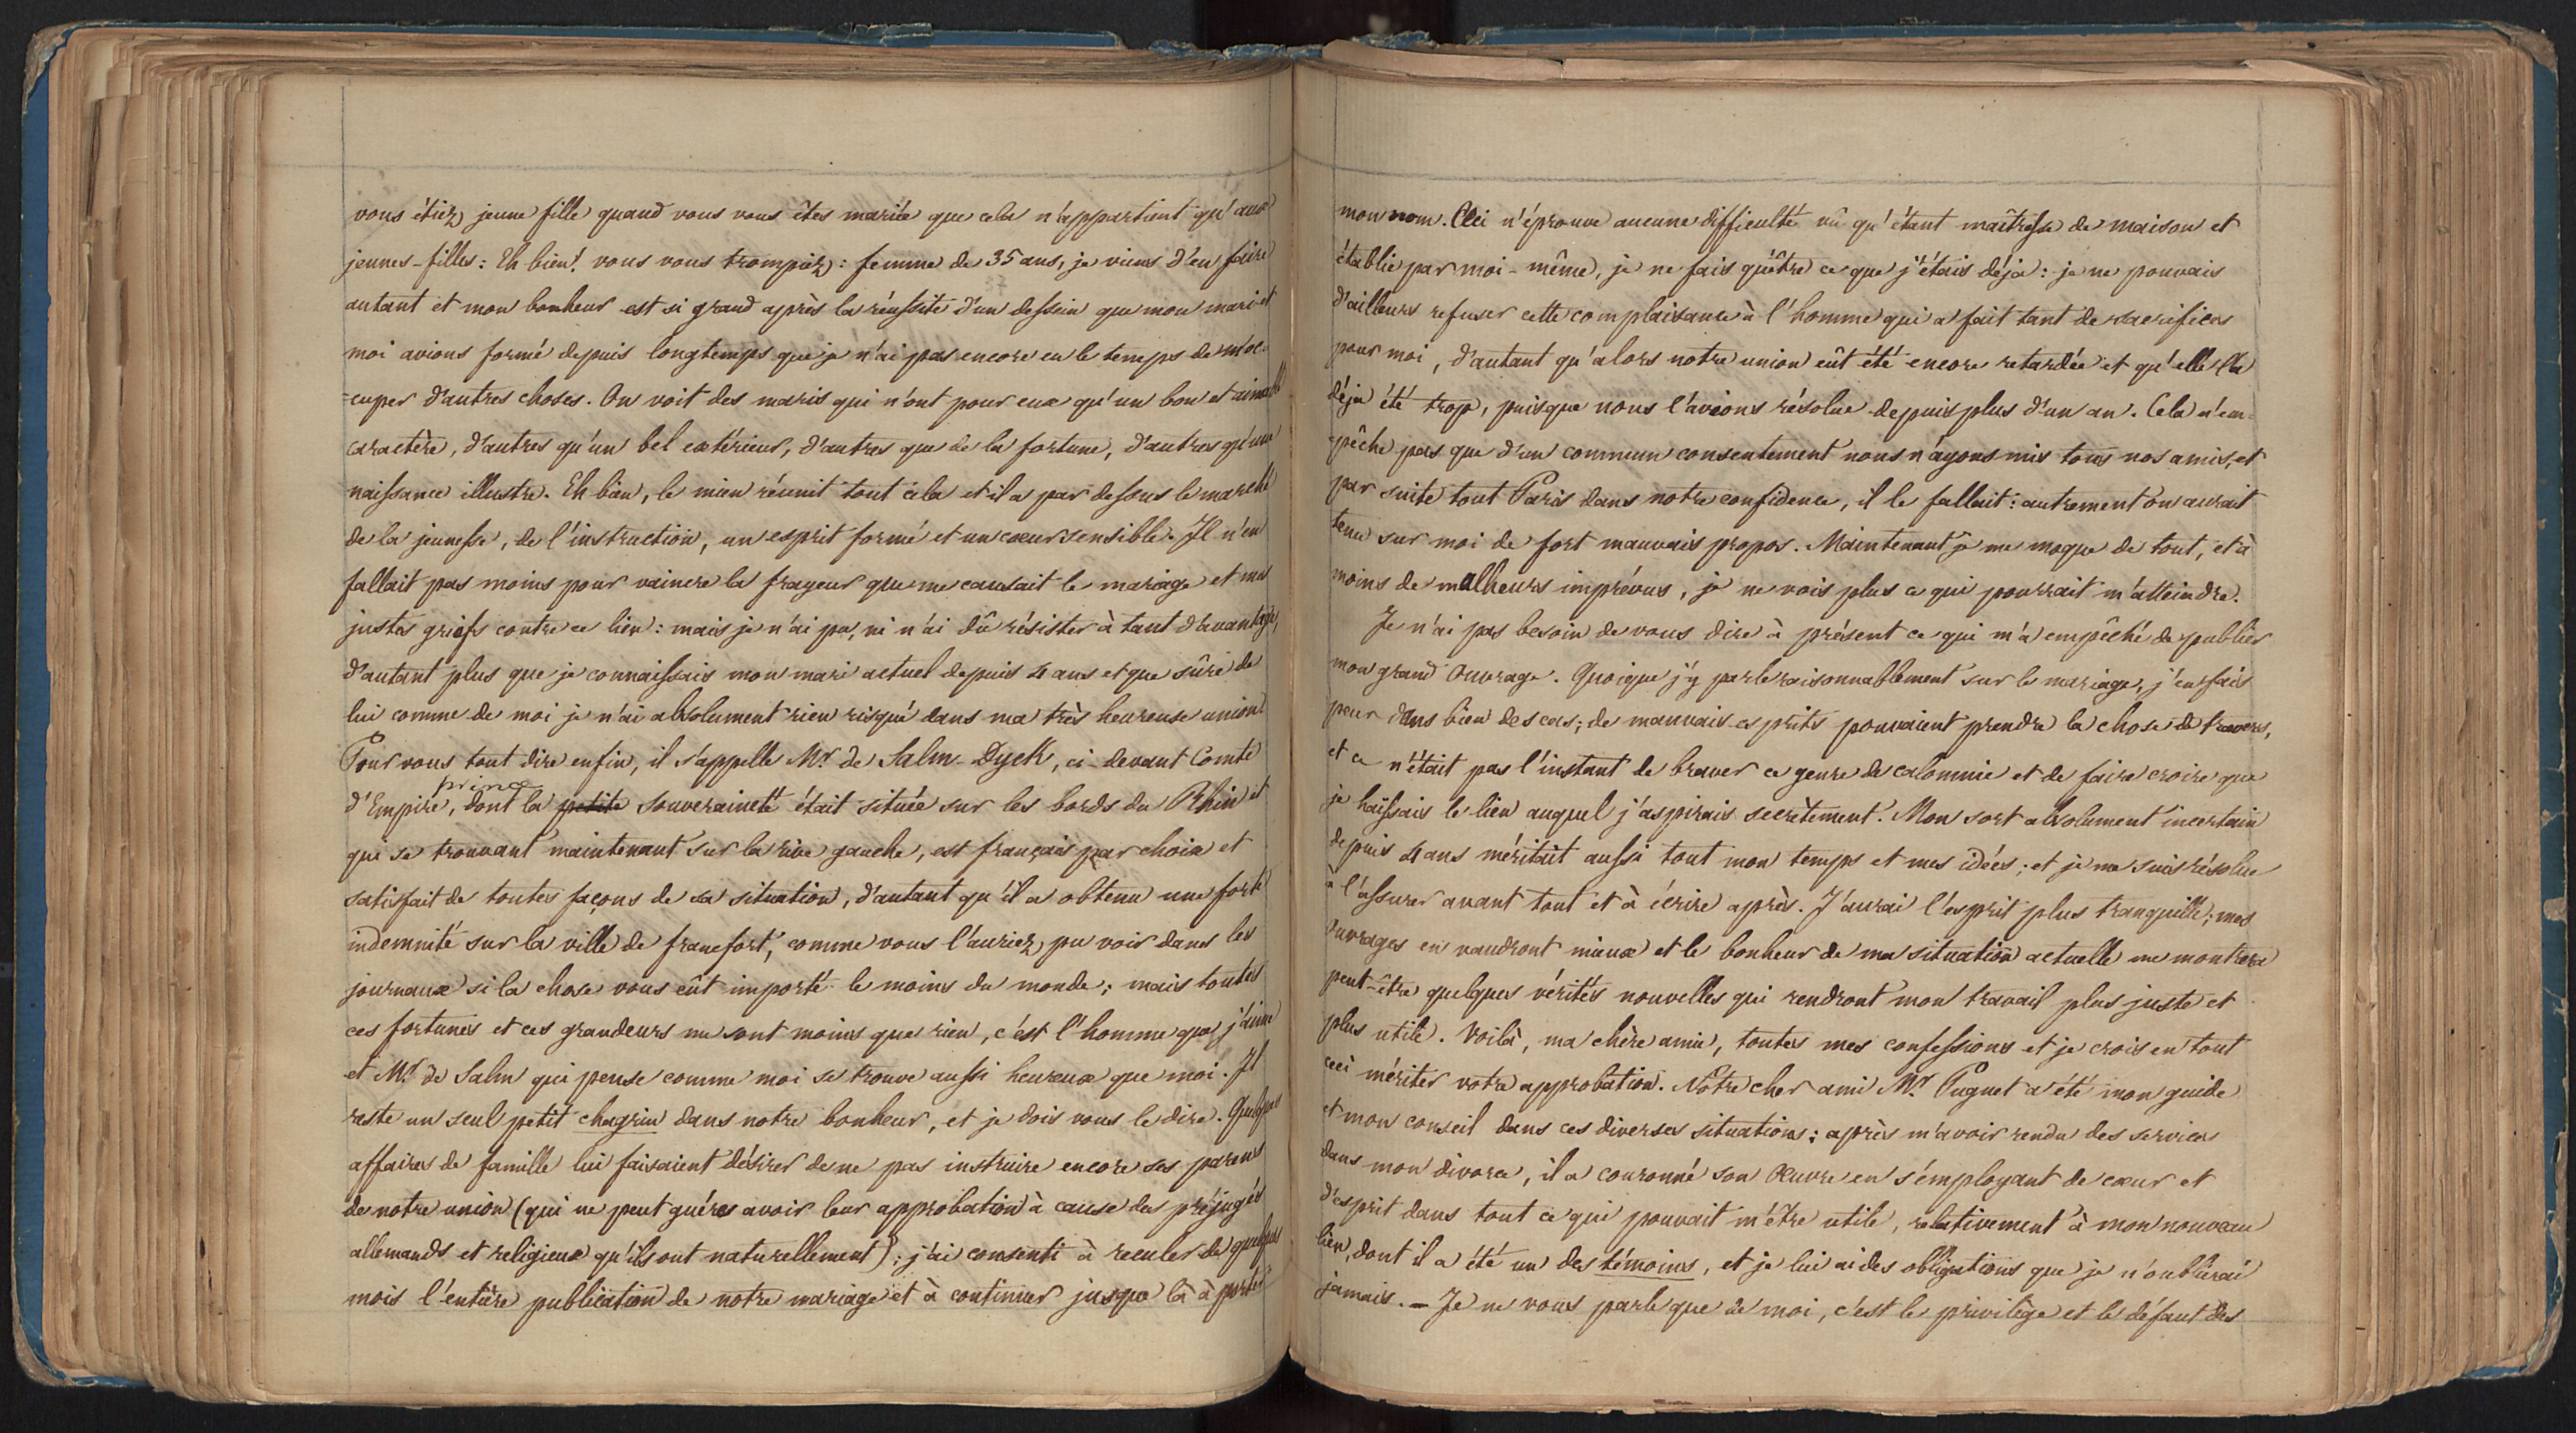 vous étiez jeune fille quand vous vous êtes mariée que cela n'appartient qu'aux
jeunes-filles : Eh bien! vous vous trompiez : femme de 35 ans, je viens d'en faire
autant et mon bonheur est si grand après la réussite d'un dessein que mon mari et
moi avions formé depuis longtemps que je n'ai pas encore eu le temps de m'oc-
-cuper d'autres choses. On voit des maris qui n'ont pour eux qu'un bon et aimable
caractère, d'autres qu'un bel extérieur, d'autres que de la fortune, d'autres qu'une
naissance illustre. Eh bien, le mien réunit tout cela et il a par dessus le marché
de la jeunesse, de l'instruction, un esprit formé et un cœur sensible. Il n'en
fallait pas moins pour vaincre la frayeur que me causait le mariage et mes
justes griefs contre ce lien : mais je n'ai pu, ni n'ai dû résister à tant d'avantages,
d'autant plus que je connaissais mon mari actuel depuis 4 ans et que sûre de
lui comme de moi je n'ai absolument rien risqué dans ma très heureuse union!
Pour vous tout dire enfin, il s'appelle Mr. de Salm-Dyck, ci-devant Comte
prince
d'Empire, dont la petite souveraineté était située sur les bords du Rhin et
qui se trouvant maintenant sur la rive gauche, est français par choix et
satisfait de toutes façons de sa situation, d'autant qu'il a obtenu une forte
indemnité sur la ville de francfort, comme vous l'auriez pu voir dans les
journaux si la chose vous eût importé le moins du monde ; mais toutes
ces fortunes et ces grandeurs me sont moins que rien, c'est l'homme que j'aime
et Mr. de Salm qui pense comme moi se trouve aussi heureux que moi. Il
reste un seul petit chagrin dans notre bonheur, et je dois vous le dire. Quelques
affaires de famille lui faisaient désirer de ne pas instruire encore ses parens
de notre union (qui ne peut guéres avoir leur approbation à cause des préjugés
allemands et religieux qu'ils ont naturellement) ; j'ai consenti à reculer de quelques
mois l'entière publication de notre mariage et à continuer jusque là à porter
mon nom. Ceci n'éprouve aucune difficulté vû qu'étant maîtresse de maison et
établie par moi-même, je ne fais qu'être ce que j'étais déjà : je ne pouvais
d'ailleurs refuser cette complaisance à l'homme qui a fait tant de sacrifices
pour moi, d'autant qu'alors notre union eût été encore retardée et qu'elle l'a
déjà été trop, puisque nous l'avions résolue depuis plus d'un an. Cela n'em-
-pêche pas que d'un commun consentement nous n'ayons mis tous nos amis, et
par suite tout Paris dans notre confidence, il le fallait : autrement on aurait
tenu sur moi de fort mauvais propos. Maintenant je me moque de tout, et à
moins de malheurs imprévus, je ne vois plus ce qui pourrait m'atteindre.
Je n'ai pas besoin de vous dire à présent ce qui m'a empêché de publier
mon grand Ouvrage. Quoique j'y parle raisonnablement sur le mariage, j'en fais
peur dans bien des cas ; de mauvais esprits pouvaient prendre la chose de travers,
et ce n'était pas l'instant de braver ce genre de calomnie et de faire croire que
je haïssais le lien auquel j'aspirais secrètement. Mon sort absolument incertain
depuis 4 ans méritait aussi tout mon temps et mes idées ; et je me suis résolue
à l'assurer avant tout et à écrire après. J'aurai l'esprit plus tranquille ; mes
Ouvrages en vaudront mieux et le bonheur de ma situation actuelle me montrera
peut-être quelques vérités nouvelles qui rendront mon travail plus juste et
plus utile. Voilà, ma chère amie, toutes mes confessions et je crois en tout
ceci mériter votre approbation. Notre cher ami Mr. Puguet a été mon guide
et mon conseil dans ces diverses situations : après m'avoir rendu des services
dans mon divorce, il a couronné son Œuvre en s'employant de cœur et
d'esprit dans tout ce qui pouvait m'être utile, relativement à mon nouveau
lien, dont il a été un des témoins, et je lui ai des obligations que je n'oublierai
jamais. — Je ne vous parle que de moi, c'est le privilège et le défaut des